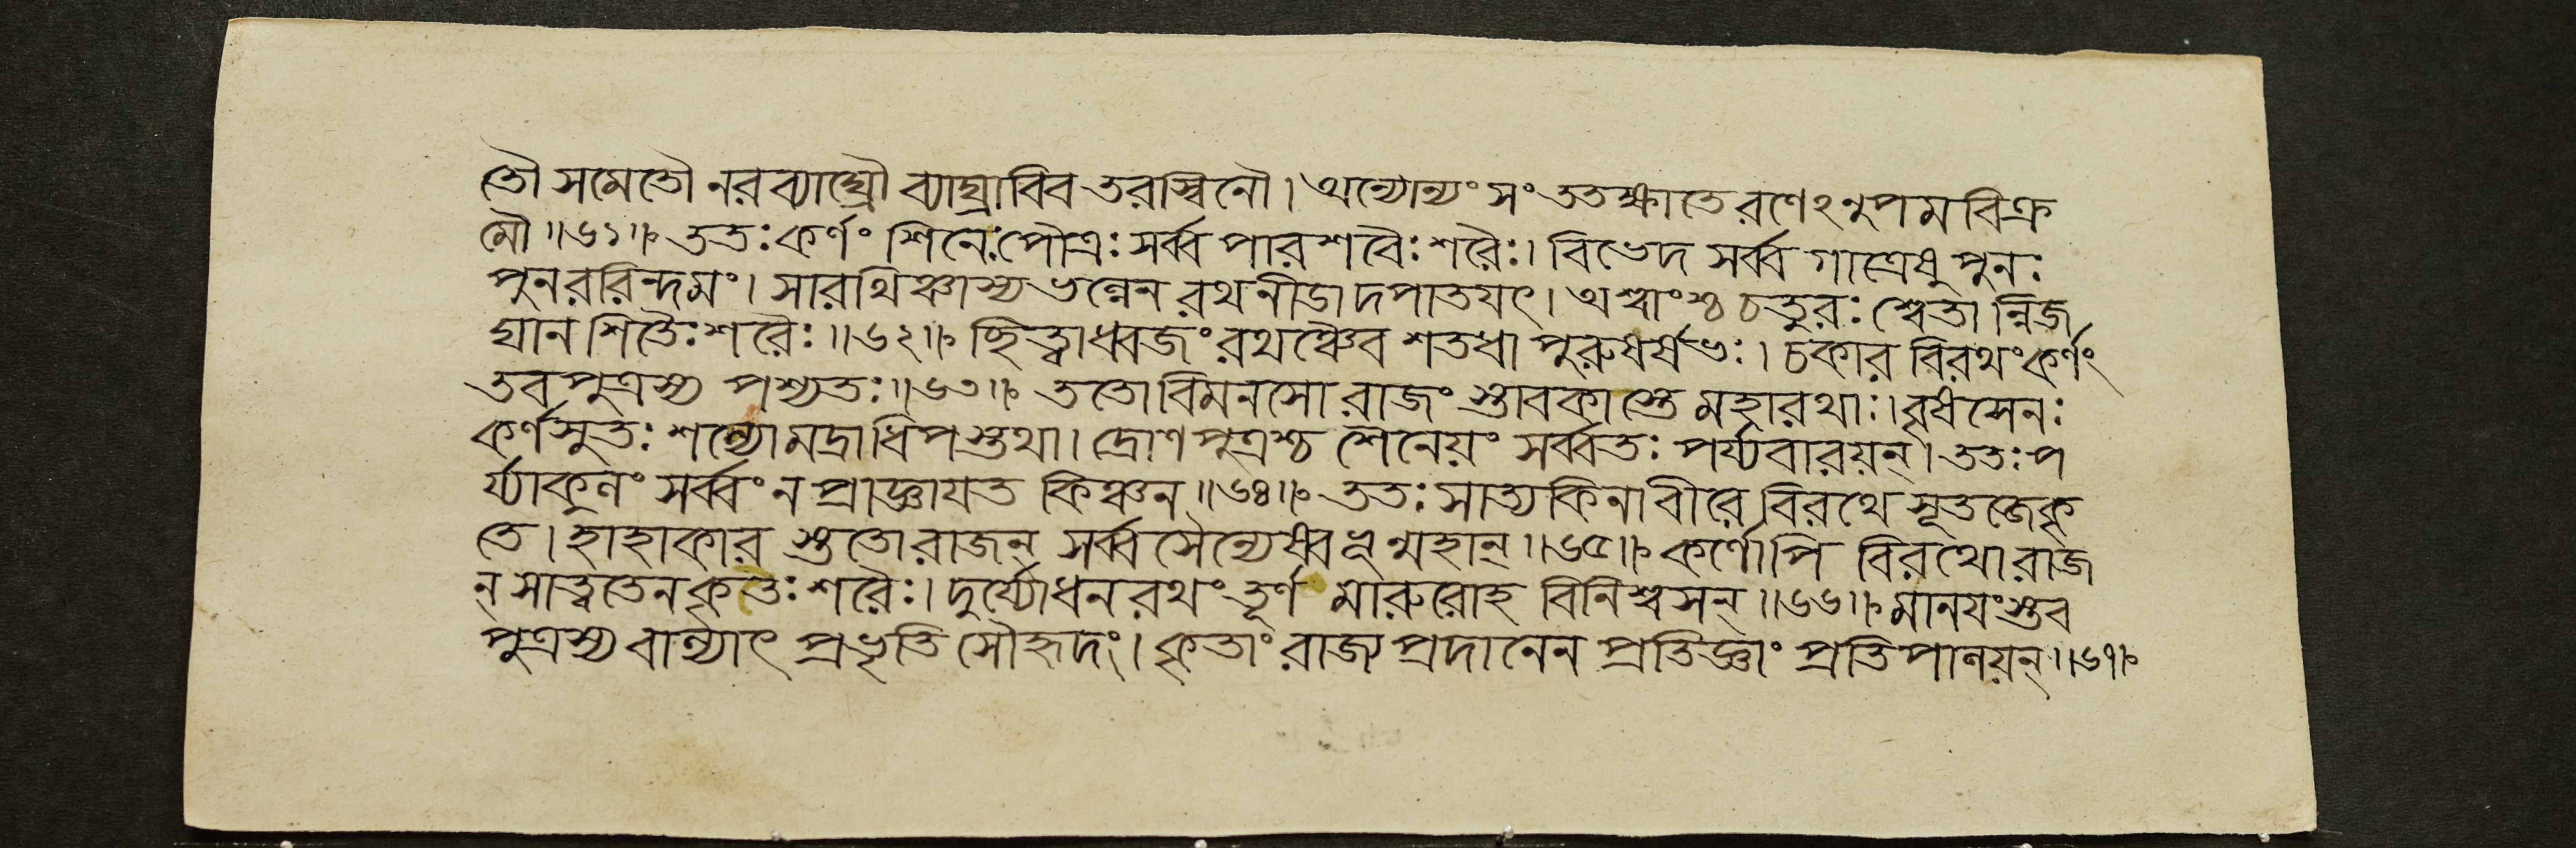 তৌ সমেতৌ নরব্যাঘ্রৌ ব্যাঘ্রাবিব তরস্বিনৌ। অন্যোন্যং সংততক্ষাতে রণেঽনুপমবিক্র
মৌ॥৬১॥ ততঃ কর্ণং শিনেঃ পৌত্রঃ সর্ব্বপারশবৈঃ শরৈঃ। বিভেদ সর্ব্বগাত্রেষু পুনঃ
পুনররিন্দমং। সারথিঞ্চাস্য ভল্লেন রথনীডাদপাতযৎ। অশ্বাংশ্চ চতুরঃ শ্বেতান্নিজ
ঘান শিতৈঃ শরৈঃ॥৬২॥ ছিত্ত্বা ধ্বজং রথঞ্চৈব শতধা পুরুষর্ষভঃ। চকার বিরথং কর্ণং
তব পুত্রস্য পশ্যতঃ॥৬৩॥ ততো বিমনসো রাজংস্তাবকাস্তে মহারথাঃ। বৃষসেনঃ
কর্ণসুতঃ শল্যো মদ্রাধিপস্তথা। দ্রোণপুত্রশ্চ শৈনেয়ং সর্ব্বতঃ পর্য্যবারয়ন্। ততঃ প
র্য্যাকুলং সর্ব্বং ন প্রাজ্ঞাযত কিঞ্চন॥৬৪॥ ততঃ সাত্যকিনা বীরে বিরথে সূতজে কৃ
তে। হাহাকারস্ততো রাজন্ সর্ব্বসৈন্যেষ্বভূন্মহান্॥৬৫॥ কর্ণোপি বিরথো রাজ
ন্ সাত্ত্বতেন কৃতঃ শরৈঃ। দুর্য্যোধনরথং তূর্ণমারুরোহ বিনিশ্বসন্॥৬৬॥ মানযংস্তব
পুত্রস্য বাল্যাৎ প্রভৃতি সৌহৃদং। কৃতাং রাজ্যপ্রদানেন প্রতিজ্ঞাং প্রতিপালয়ন্॥৬৭॥